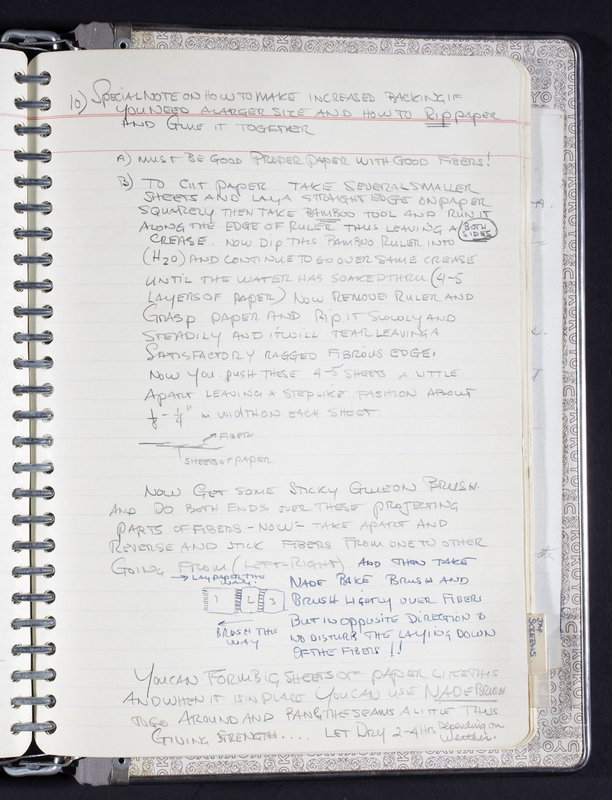 10) SPECIAL NOTE ON HOW TO MAKE INCREASED BACKING IF
YOU NEED A LARGER SIZE AND HOW TO RIP PAPER
AND GLUE IT TOGETHER
A) MUST BE GOOD PROPER PAPER WITH GOOD FIBERS!
B) TO CUT PAPER TAKE SEVERAL SMALLER
SHEETS AND LAY A STRAIGHT EDGE ON PAPER
SQUARELY THEN TAKE BAMBOO TOOL AND RUN IT
ALONG THE EDGE OF RULER THUS LEAVING A
BOTH SIDES
CREASE NOW DIP THIS BAMBOO RULER INTO
(H2O) AND CONTINUE TO GO OVER SAME CREASE
UNTIL THE WATER HAS SOAKED THRU (4-5
LAYERS OF PAPER) NOW REMOVE RULER AND
GRASP PAPER AND RIP IT SLOWLY AND
STEADILY AND IT WILL TEAR LEAVING A
SATISFACTORY RAGGED FIBROUS EDGE.
NOW YOU PUSH THESE 4-5 SHEETS A LITTLE
APART LEAVING A STEPLIKE FASHION ABOUT
1/8 - 1/4" IN WIDTH ON EACH SHEET
FIBERS
SHEETS OF PAPER.
NOW GET SOME STICKY GLUE ON BRUSH.
AND DO BOTH ENDS OVER THESE PROJECTING
PARTS OF FIBERS - NOW - TAKE APART AND
REVERSE AND STICK FIBERS FROM ONE TO OTHER
GOING FROM (LEFT-RIGHT) AND THEN TAKE
→ LAY PAPER THIS WAY.
NADE BAKE BRUSH AND
1 2 3
BRUSH LIGHTLY OVER FIBERS
BUT IN OPPOSITE DIRECTION TO
← BRUSH THIS WAY
NO DISTURB THE LAYING DOWN
OF THE FIBERS!!
YOU CAN FORM BIG SHEETS OF PAPER LIKE THIS
AND WHEN IT IS IN PLACE YOU CAN USE NADE BRUSH
TO GO AROUND AND BANG THE SEAMS A LITTLE THUS
GIVING STRENGTH.... LET DRY 2-4 HRS Depending on Weather.
JAP SCREENS